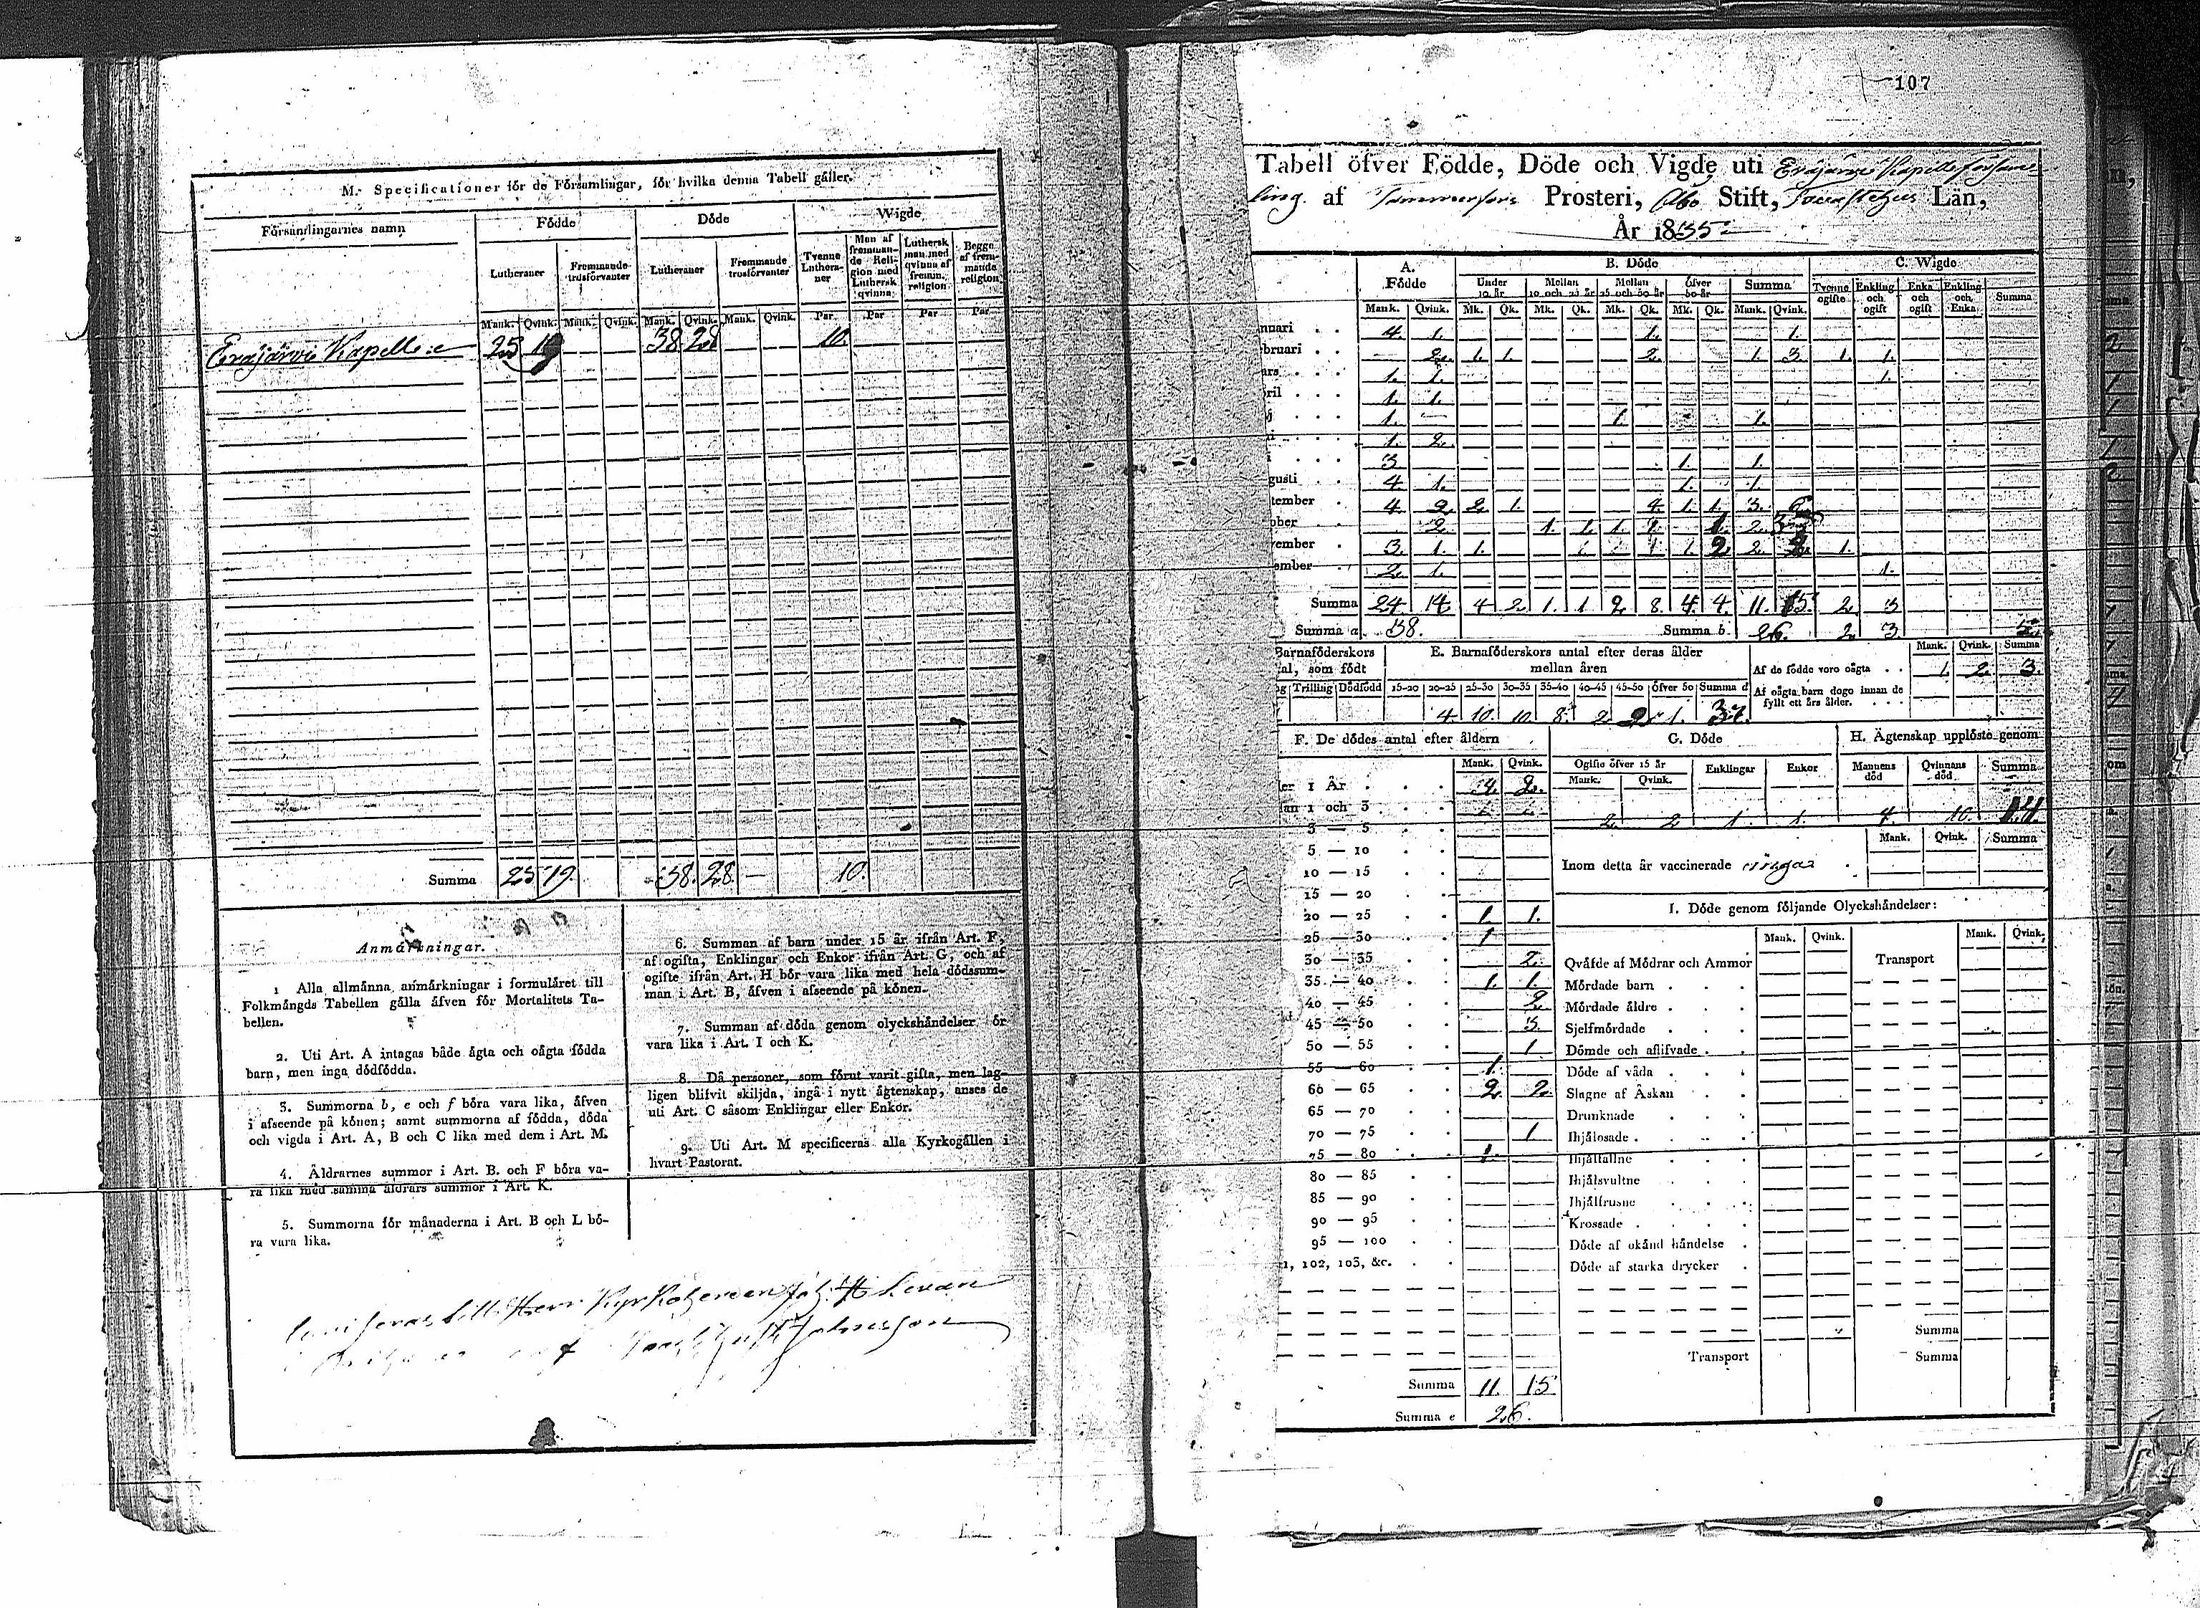 M. Specificationer för de Församlingar, för hvilka denna Tabell gäller.
Församlingarnes namn
Födde
Döde
Wigde
Lutheraner
Fremmande trosförvanter
Lutheraner
Fremmande trosförvanter
Tvenne Lutheraner
Man af fremmande Religion med Luthersk qvinna
Luthersk man med qvinna af fremm. religion
Begge af fremmande religion
Mank. Qvink. Mank. Qvink. Mank. Qvink. Mank. Qvink. Par Par Par Par
Eräjärvi Kapell 25 19 38 28 10.
Summa 25 19. 38. 28. 10.
Anmärkningar.
1 Alla allmänna anmärkningar i formuläret till
Folkmängds Tabellen gälla äfven för Mortalitets Ta-
bellen.
2. Uti Art. A intagas både ägta och oägta födda
barn, men inga dödfödda.
3. Summorna b, e och f böra vara lika, äfven
i afseende på könen; samt summorna af födda, döda
och vigda i Art. A, B och C lika med dem i Art. M.
4. Åldrarnes summor i Art. B. och F böra va-
ra lika med samma åldrars summor i Art. K.
5. Summorna för månaderna i Art. B och L bö-
ra vara lika.
6. Summan af barn under 15 år ifrån Art. F,
af ogifta, Enklingar och Enkor ifrån Art. G, och af
gifte ifrån Art. H bör vara lika med hela dödssum-
man i Art. B, äfven i afseende på könen.
7. Summan af döda genom olyckshändelser ör
vara lika i Art. I och K.
8. Då personer, som förut varit gifta, men lag-
ligen blifvit skiljda, ingå i nytt ägtenskap, anses de
uti Art. C såsom Enklingar eller Enkor.
9. Uti Art. M specificeras alla Kyrkogällen i
hvart Pastorat.
Herr Kyrkoherden
107
Tabell öfver Födde, Döde och Vigde uti Eräjärvi Kapellförsam-
ling. af Tammerfors Prosteri, Åbo Stift, Tavastehus Län,
År 1835
A. Födde
B. Döde
C. Wigde
Under 10 år
Mellan 10 och 25 år
Mellan 25 och 50 år
Öfver 50 år
Summa
Tvenne ogifte
Enkling och ogift
Enka och ogift
Enkling och Enka
Summa
Mank. Qvink. Mk. Qk. Mk. Qk. Mk. Qk. Mk. Qk. Mank. Qvink.
nuari 4. 1. 1. 1.
bruari 2. 1. 1. 2. 1. 3. 1. 1.
ars 1. 1. 1.
pril 1. 1.
j 1. 1. 1.
i 1. 2.
i 3 1. 1.
gusti 4 1. 1. 1.
tember 4 2 2. 1. 4 1. 1. 3. 6
ober 2. 1. 1. 1. 1. 1. 2. 3
vember 3. 1. 1. 1 1. 2 2. 1.
ember 2. 1. 1.
Summa 24 14 4 2 1. 1 2 8 4. 4. 11. 15. 2 3
Summa a. 38.
Summa b 26. 2 3 5
Barnaföderskors
al, som födt
g Trilling Dödfödd
E. Barnaföderskors antal efter deras ålder
mellan åren
15-20 20-25 25-30 30-35 35-40 40-45 45-50 Öfver 50 Summa d
4 10. 10. 8 2 2 1. 37.
Mank. Qvink. Summa
Af de födde voro oägta . . 1. 2. 3.
Af oägta barn dogo innan de
fyllt ett års ålder. . . .
F. De dödes antal efter åldern
Mank. Qvink.
er 1 År . . . 2.
an 1 och 3
3 — 5
5 — 10
10 — 15
15 — 20
20 — 25 1 1.
25 — 30 1
30 — 35 2.
35 — 40 1. 1.
40 — 45 2.
45 — 50 3.
50 — 55 1
55 — 60 1.
60 — 65 2. 2.
65 — 70
70 — 75 1
75 — 80 1.
80 — 85
85 — 90
90 — 95
95 — 100
1, 102, 103, &c.
Summa 11. 15
Summa e 26.
G. Döde
Ogifte öfver 15 år
Mank. Qvink.
Enklingar
Enkor
2 2 1. 1.
H. Ägtenskap upplöste genom
Mannens död
Qvinnans död
Summa
4. 10. 14.
Mank. Qvink. Summa
Inom detta år vaccinerade inga
I. Döde genom följande Olyckshändelser:
Mank. Qvink. Mank. Qvink.
Qväfde af Mödrar och Ammor Transport
Mördade barn . . .
Mördade äldre . . .
Sjelfmördade . . .
Dömde och aflifvade . .
Döde af våda . . .
Slagne af Åskan . . .
Drunknade . . .
Ihjälosade . . . .
Ihjälfallne . . .
Ihjälsvultne . . .
Ihjälfrusne . . .
Krossade . . . .
Döde af okänd händelse .
Döde af starka drycker .
Summa
Transport Summa